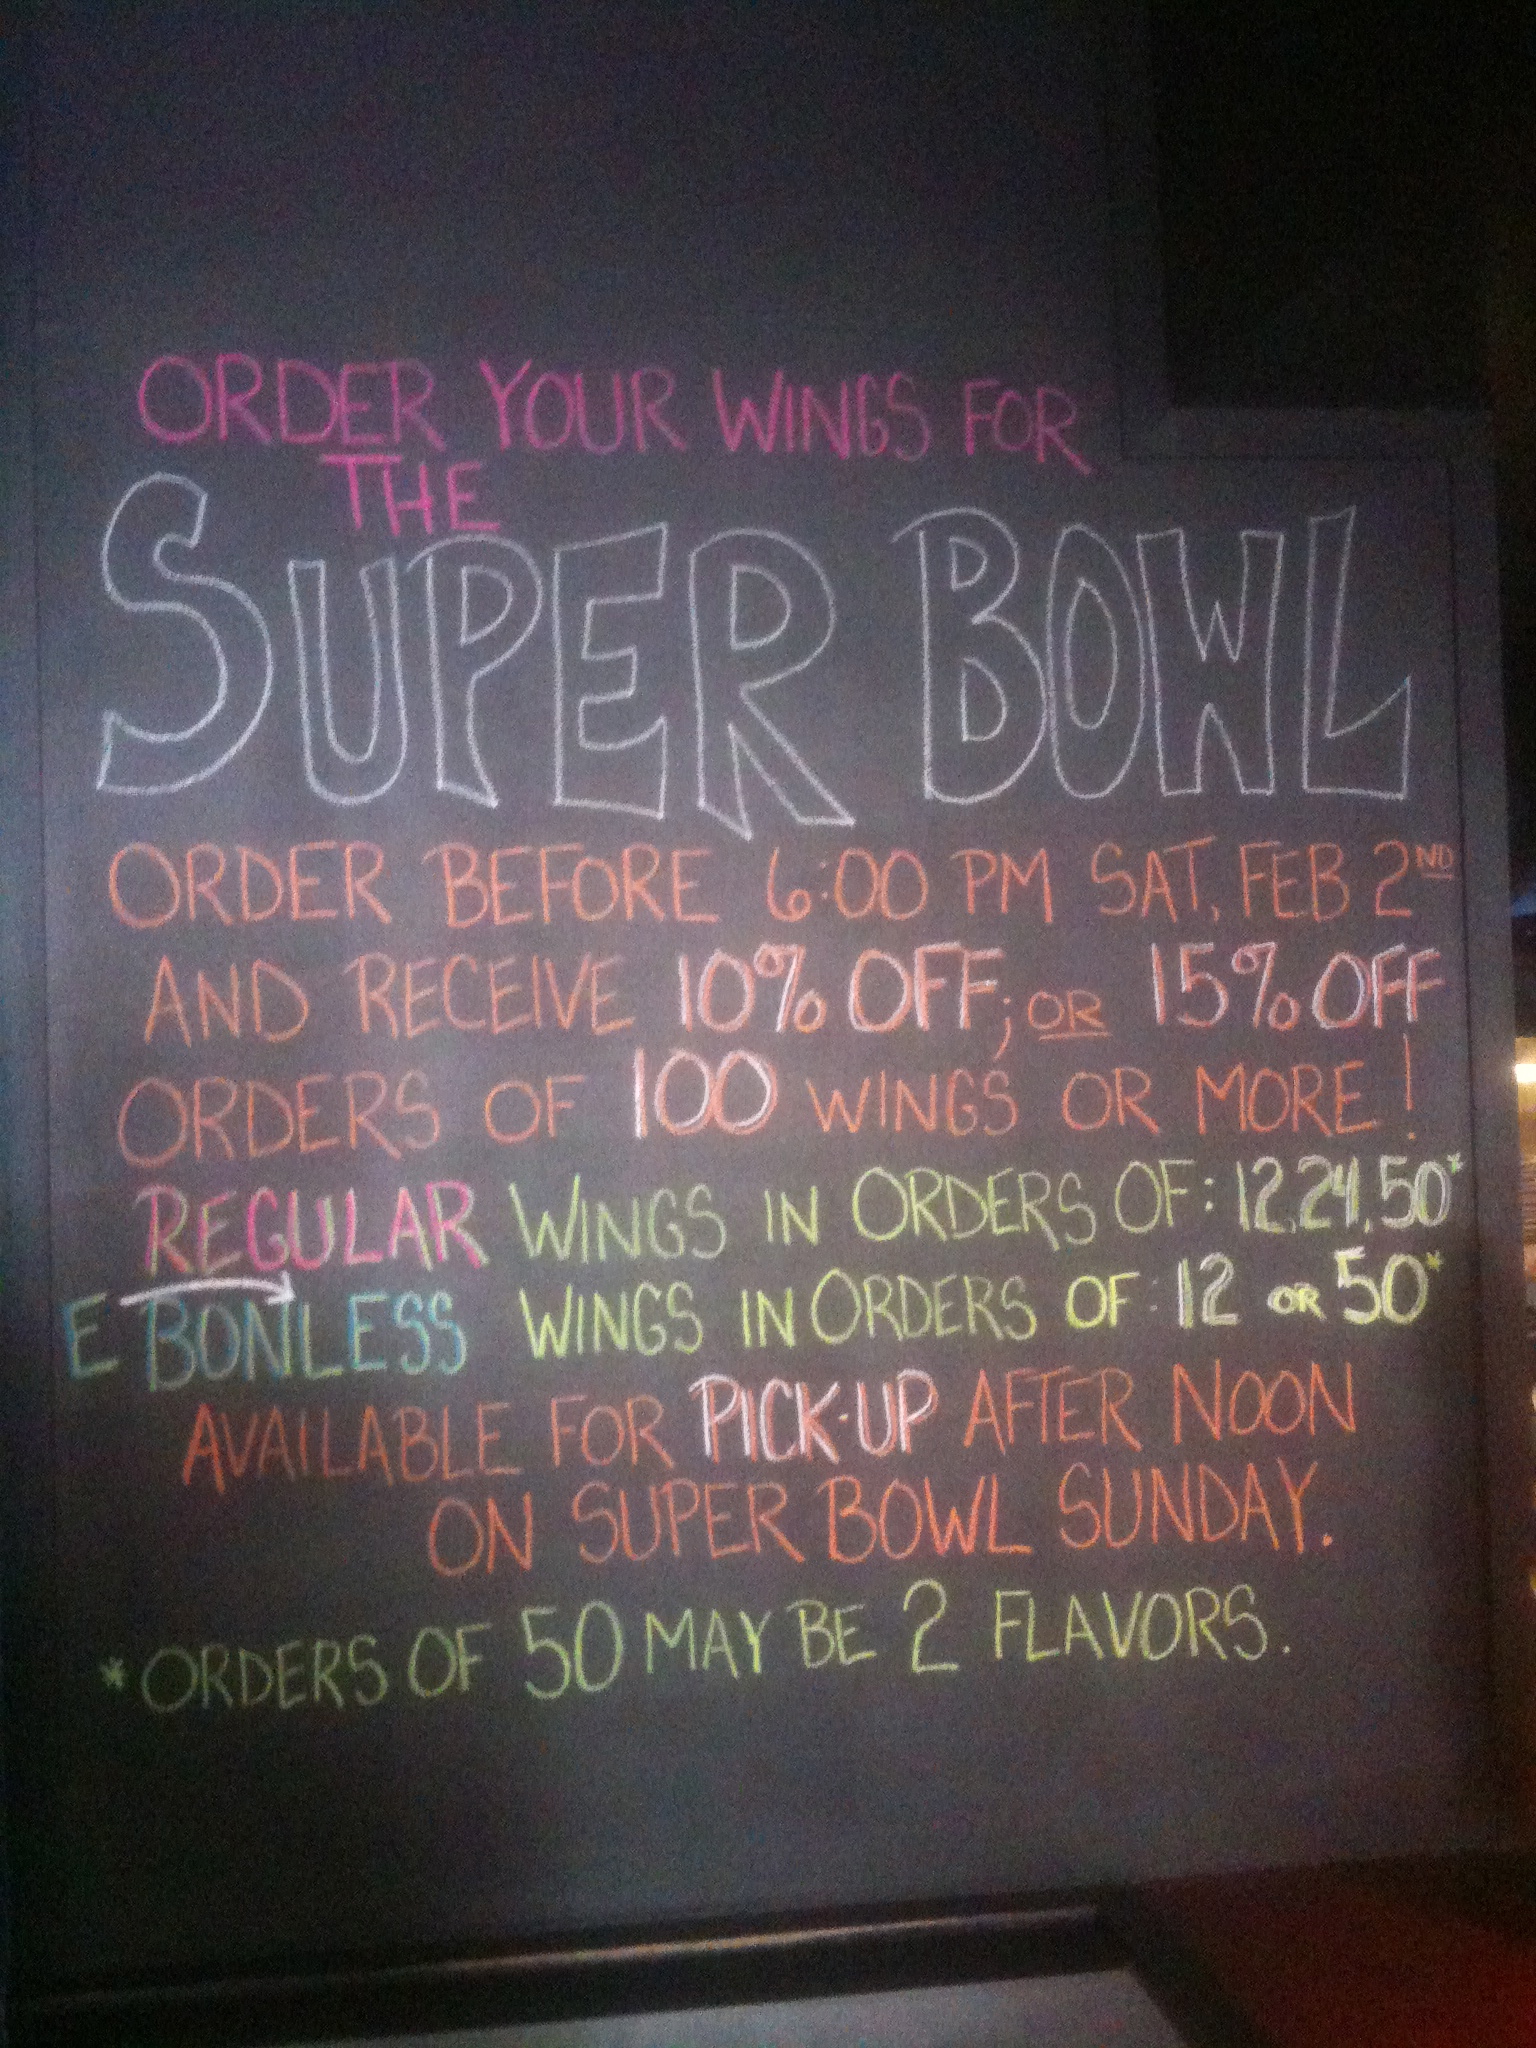 ORDER YOUR WINGS FOR
THE
SUPER BOWL
ORDER BEFORE 6:00 PM SAT, FEB 2ND
AND RECEIVE 10% OFF; OR 15% OFF
ORDERS OF 100 WINGS OR MORE!
REGULAR WINGS IN ORDERS OF: 12, 24, 50*
E BONLESS WINGS IN ORDERS OF: 12 OR 50*
AVAILABLE FOR PICK-UP AFTER NOON
ON SUPER BOWL SUNDAY.
*ORDERS OF 50 MAY BE 2 FLAVORS.